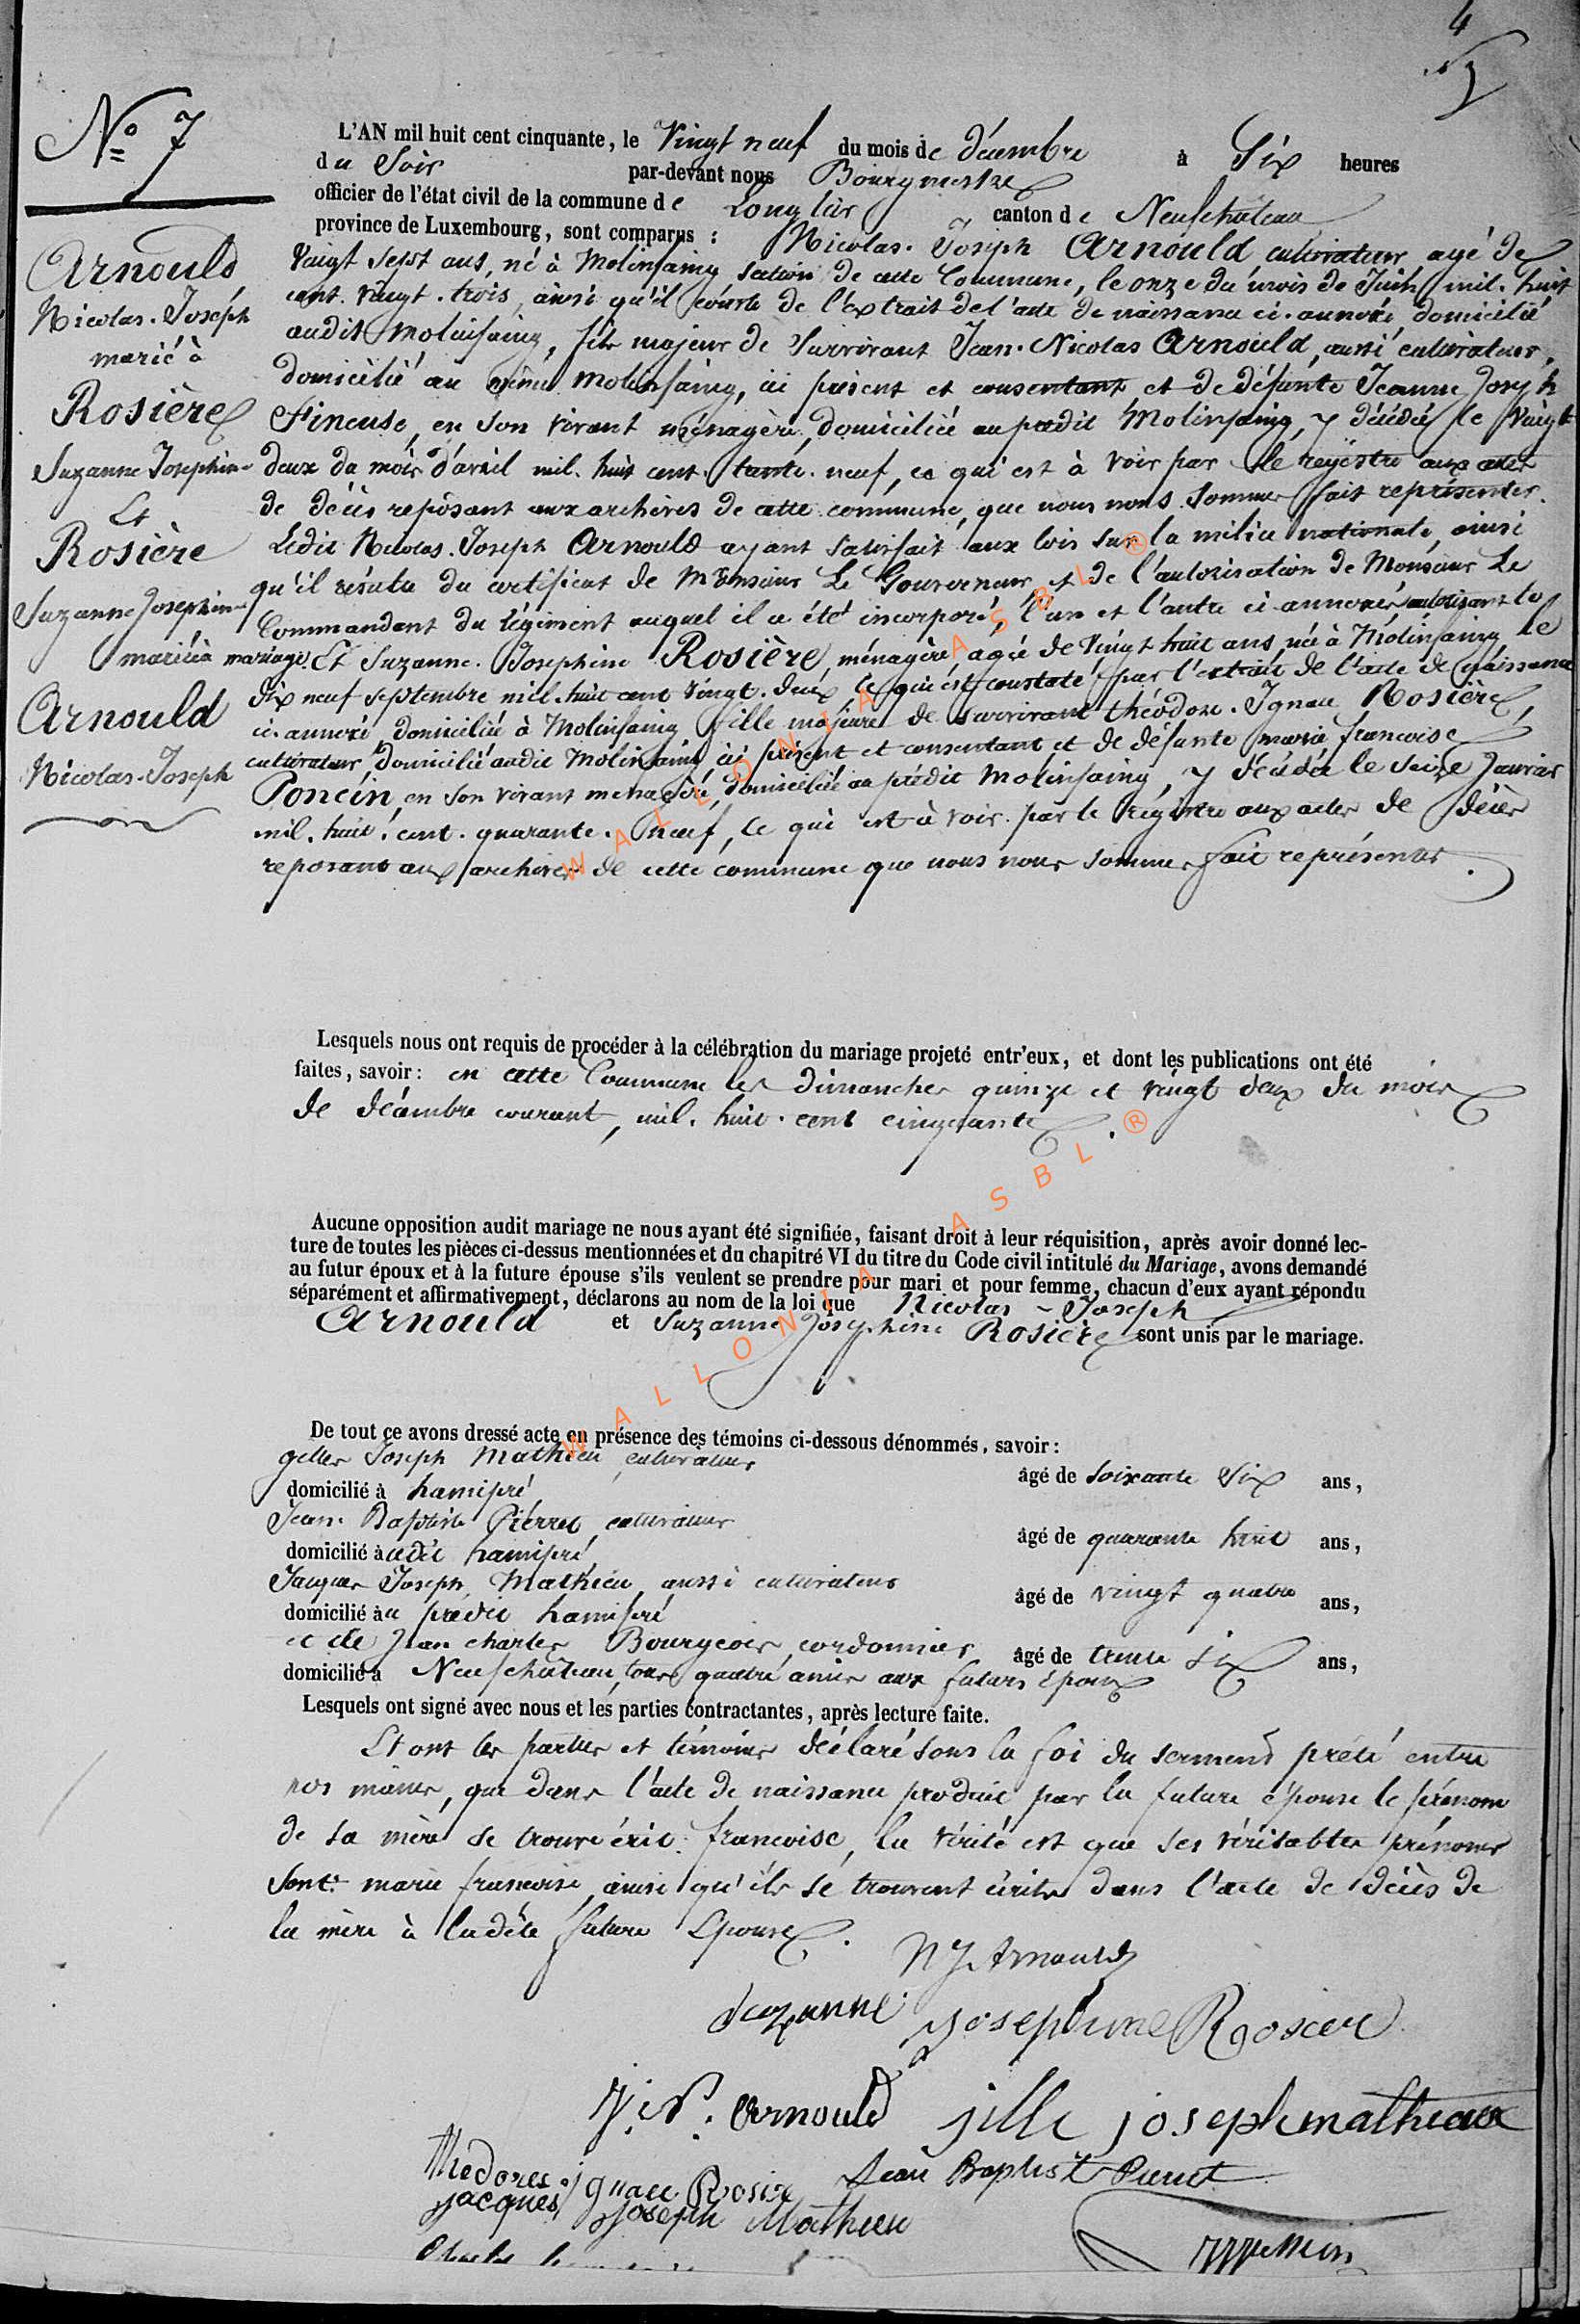 4
5
Nº 7
Arnould
Nicolas. Joseph
marié à
Rosière
Suzanne Josephine
Et
Rosière
Suzanne Josephine
mariée à
Arnould
Nicolas-Joseph
L'AN mil huit cent cinquante, le Vingt neuf du mois de décembre à Six heures
du Soir par-devant nous Bourgmestre
officier de l'état civil de la commune de Longlier, canton de Neufchâteau
province de Luxembourg, sont comparus : Nicolas. Joseph Arnould cultivateur agé de
Vingt sept ans, né à Molinfaing section de cette Commune, le onze du mois de Juin mil. huit
cent. vingt. trois, ainsi qu'il conste de l'extrait de l'acte de naissance ci-annexé domicilié
audit Molinfaing, fils majeur de Survivant Jean. Nicolas Arnould, aussi cultivateur,
domicilié au même Molinfaing, ici présent et consentant et de défunte Jeanne Joseph
Fineuse, en son vivant ménagère, domiciliée au prédit Molinfaing, y décédée le vingt
deux du mois d'avril mil. huit cent. trente. neuf, ce qui est à voir par le régistre aux actes
de décès reposant aux archives de cette commune, que nous nous sommes fait représenter.
Ledit Nicolas. Joseph Arnould ayant satisfait aux lois sur la milice nationale, ainsi
qu'il résulte du certificat de Monsieur Le Gouverneur et de l'autorisation de Monsieur Le
Commandant du régiment auquel il a été incorporé, l'un et l'autre ci-annexés autorisant le
mariage. Et Suzanne. Josephine Rosière, ménagère, agée de vingt huit ans, née à Molinfaing le
dix neuf septembre mil. huit cent vingt. deux ce qui est constaté par l'extrait de l'acte de naissance
ci-annexé, domiciliée à Molinfaing fille majeure de survivant théodore. Ignace Rosière,
cultivateur domicilié audit Molinfaing ici présent et consentant et de défunte marie françoise
Poncin, en son vivant ménagère, domiciliée au prédit Molinfaing, y décédée le seize Janvier
mil. huit. cent. quarante. neuf, ce qui est à voir par le régistre aux actes de décès
reposant aux archives de cette commune que nous nous sommes fait représenter.
Lesquels nous ont requis de procéder à la célébration du mariage projeté entr'eux, et dont les publications ont été
faites, savoir: en cette Commune les dimanches quinze et vingt deux du mois
de décembre courant, mil. huit. cent cinquante.
Aucune opposition audit mariage ne nous ayant été signifiée, faisant droit à leur réquisition, après avoir donné lec-
ture de toutes les pièces ci-dessus mentionnées et du chapitré VI du titre du Code civil intitulé du Mariage, avons demandé
au futur époux et à la future épouse s'ils veulent se prendre pour mari et pour femme, chacun d'eux ayant répondu
séparément et affirmativement, déclarons au nom de la loi que Nicolas - Joseph
Arnould et Suzanne Josephine Rosière sont unis par le mariage.
De tout ce avons dressé acte en présence des témoins ci-dessous dénommés, savoir:
gilles Joseph Mathieu, cultivateur
âgé de soixante Six ans,
domicilié à hamipré
Jean. Baptiste Pierret, cultivateur
âgé de quarante huit ans,
domicilié audit hamipré
Jacques Joseph Mathieu, aussi cultivateur
âgé de vingt quatre ans,
domicilié au prédit hamipré
et de Jean charles Bourgeois, cordonnier âgé de trente Six ans,
domicilié à Neufchâteau, tous quatre amis aux futurs époux
Lesquels ont signé avec nous et les parties contractantes, après lecture faite.
Et ont les parties et témoins déclaré sous la foi du serment prêté entre
nos mains, que dans l'acte de naissance produit par la future épouse le prénom
de sa mère se trouve écrit: francoise, la vérité est que ses véritables prénoms
sont: marie francoise, ainsi qu'ils se trouvent écrits dans l'acte de décès de
la mère à ladite future Epouse.
N J. Arnould
Suzanne Josephine Rosiere
J. N. Arnould jille joseph mathieux
thedores ignace Rosière Jean Baptist Pierret
jacques joseph Mathieu
Charles
WALLONIA ASBL ®
WALLONIA ASBL ®